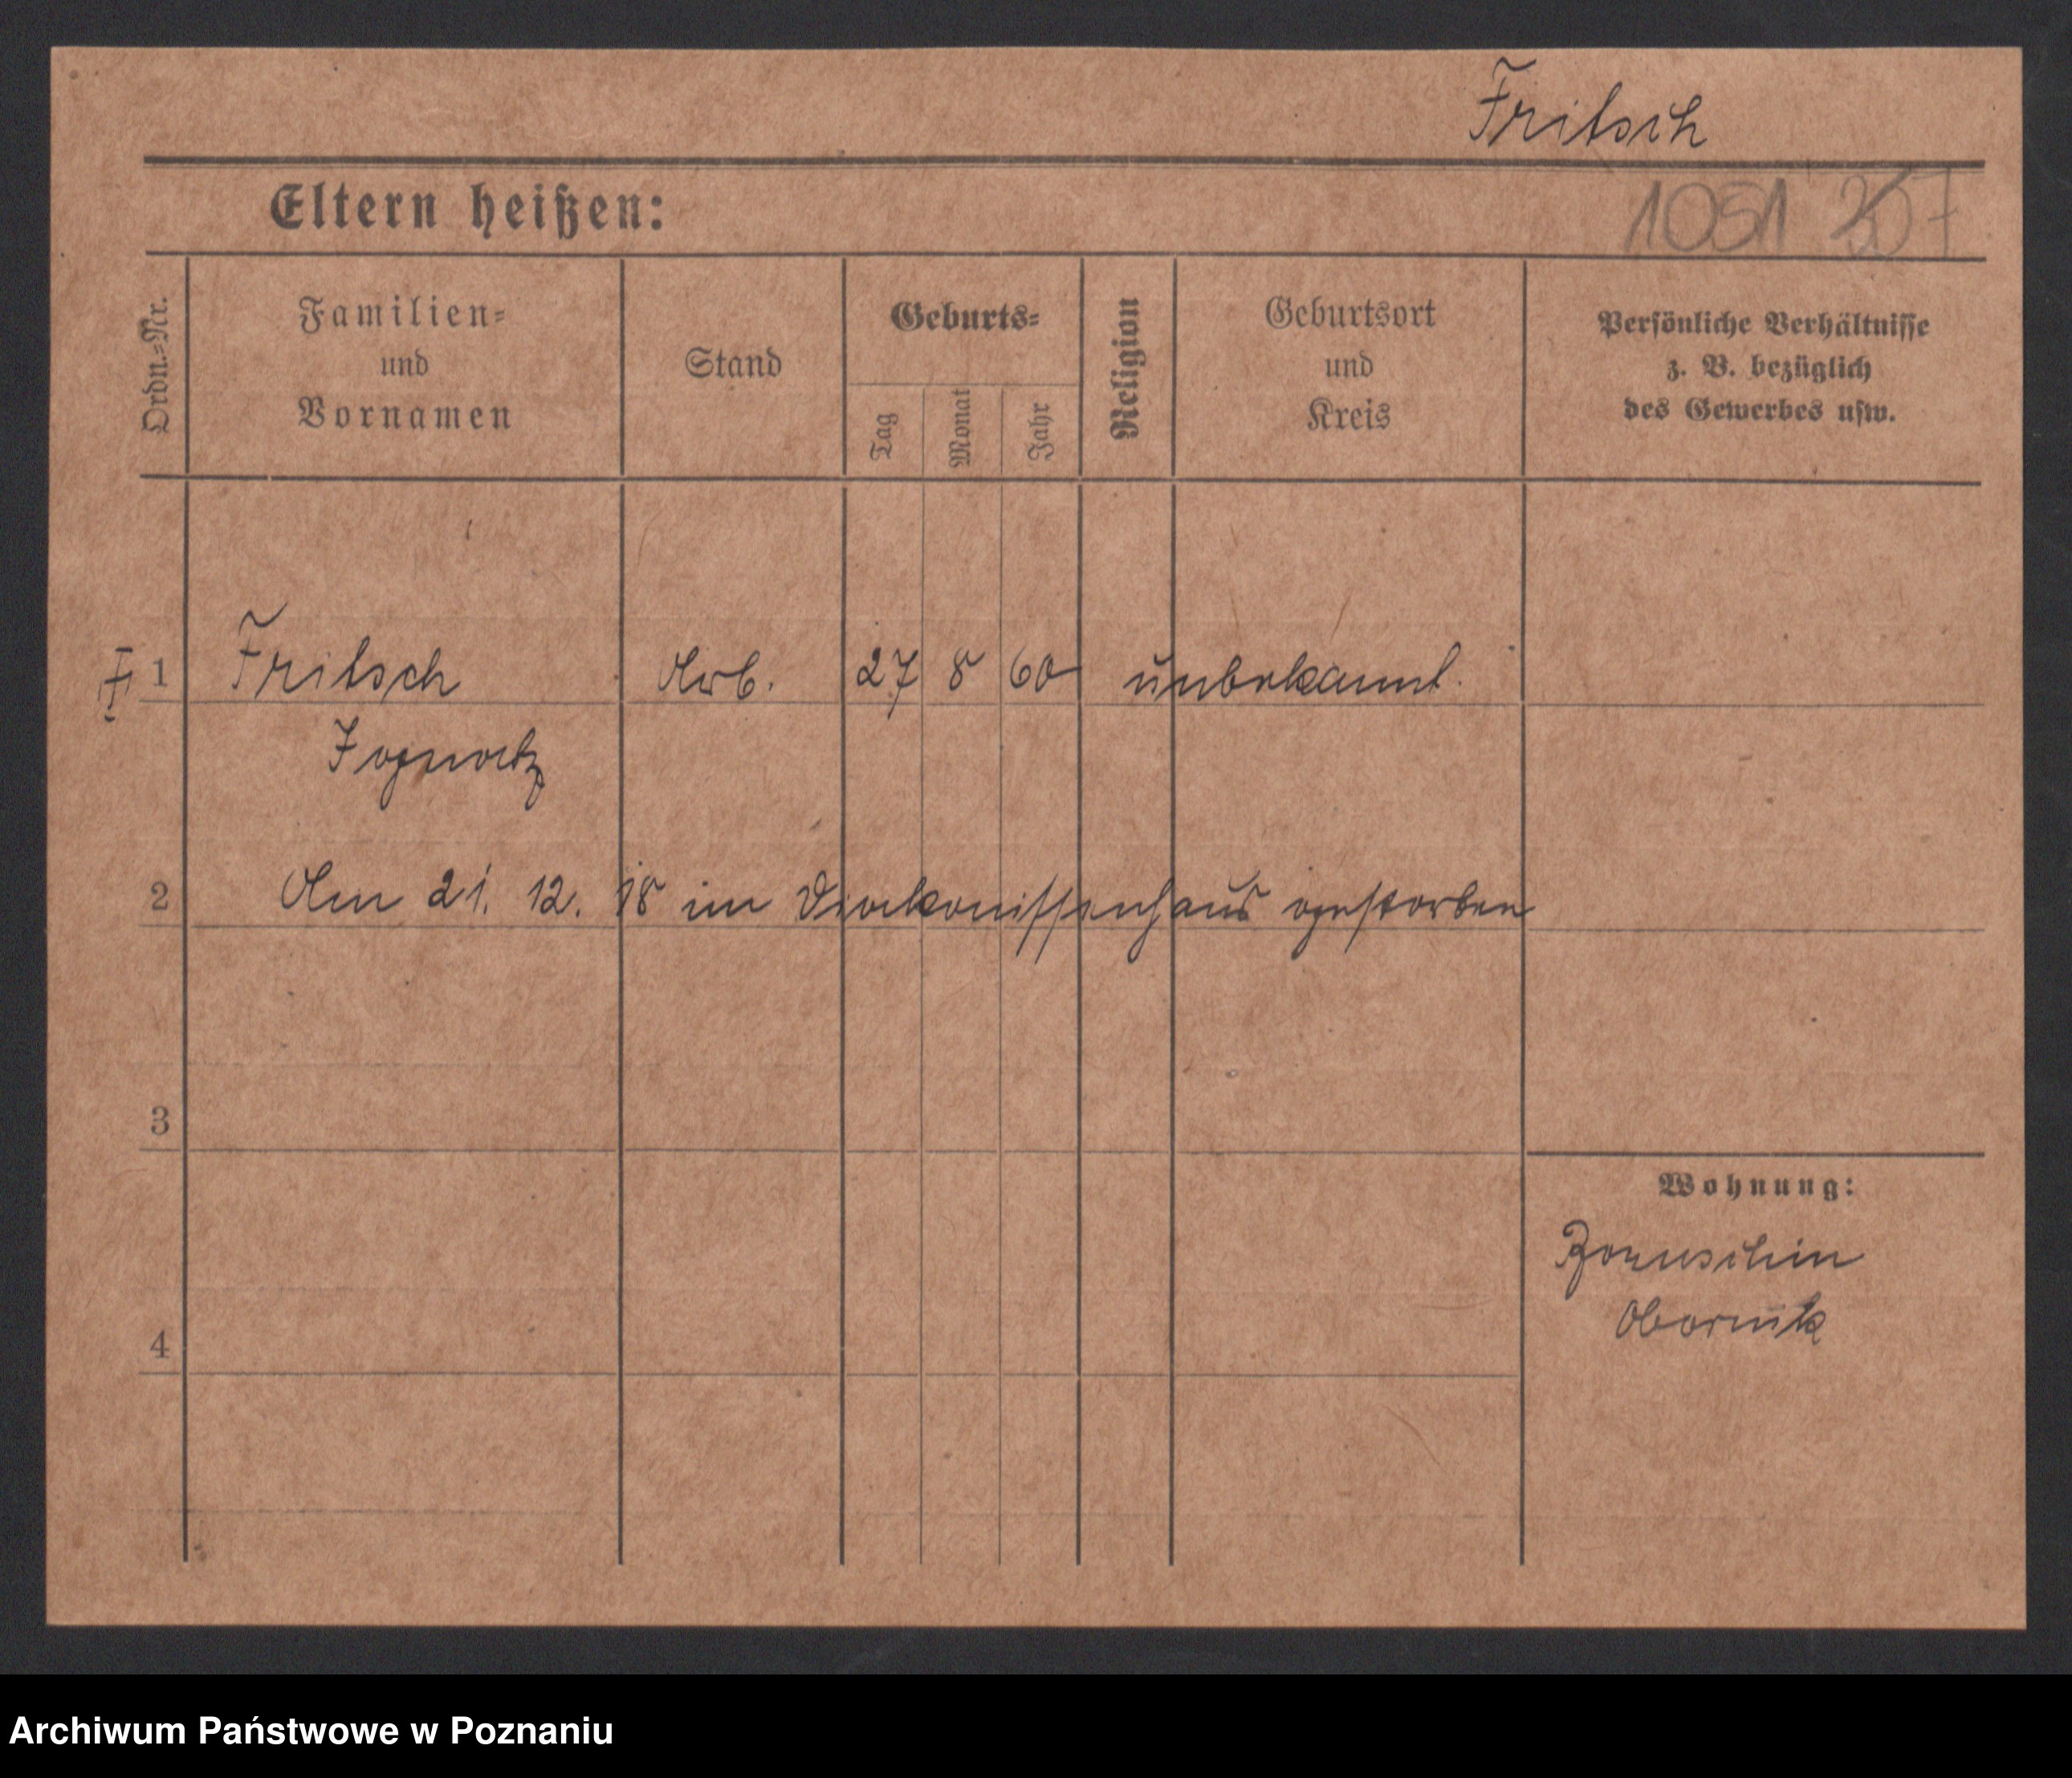 Fritsch
Eltern heißen:
1051
Ordn.=Nr.
Familien=
und
Vornamen
Stand
Geburts=
Tag
Monat
Jahr
Religion
Geburtsort
und
Kreis
Persönliche Verhältnisse
z. B. bezüglich
des Gewerbes usw.
1 Fritsch Arb. 27 8 60 unbekannt.
Ignatz
2 Am 21. 12. 18 im Diakonissenhaus gestorben
3
Wohnung:
Boruschin
Obornik
4
Archiwum Państwowe w Poznaniu